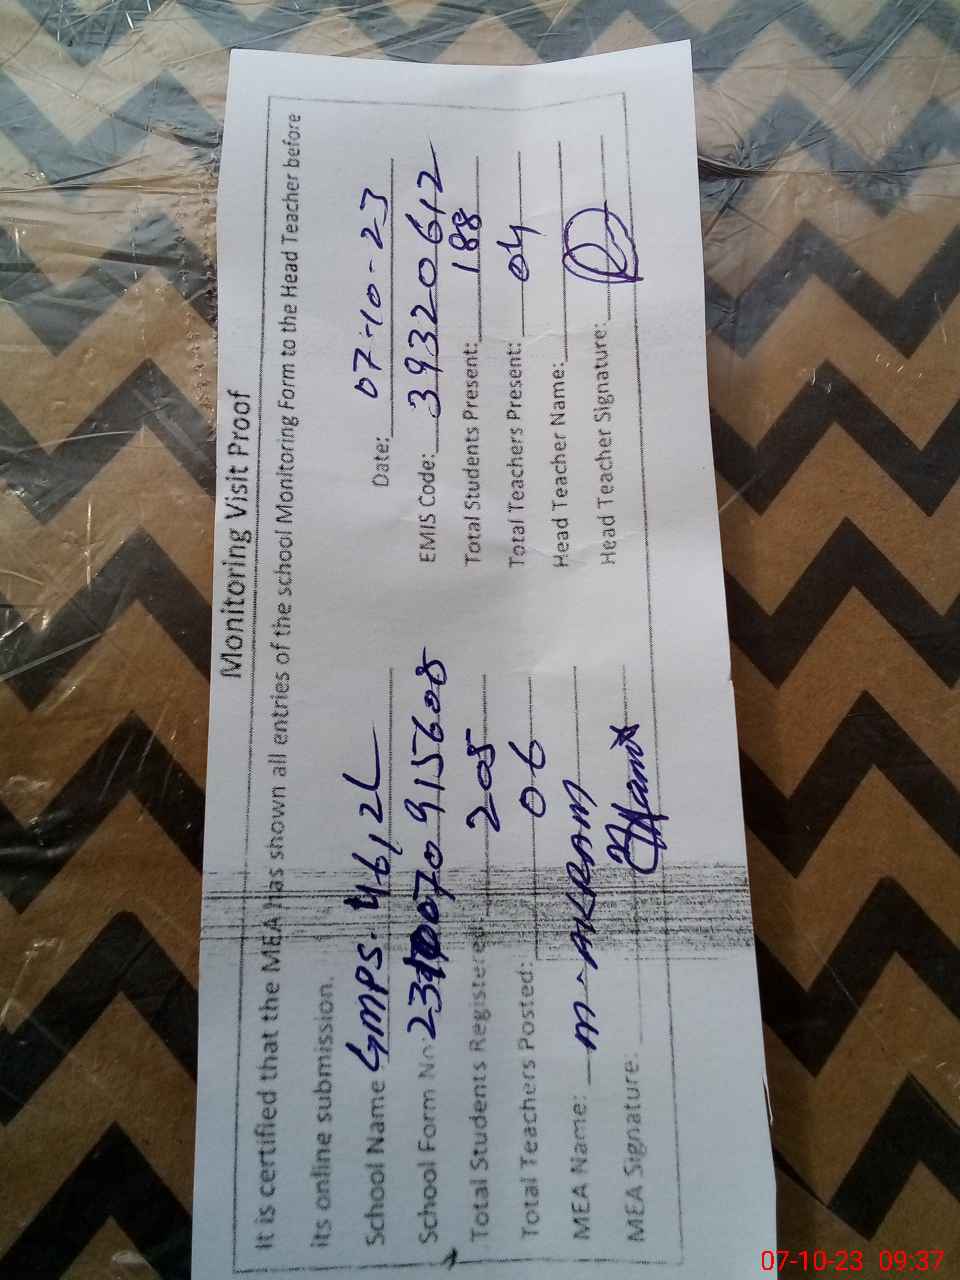 Monitoring Visit Proof
It is certified that the MEA has shown all entries of the school Monitoring Form to the Head Teacher before
its online submission.
Date: 07-10-23
School Name GMPS. 46,2L EMIS Code: 39320612
School Form No: 070915608 Total Students Present: 188
Total Students Registered 205 Total Teachers Present: 04
Total Teachers Posted: 06 Head Teacher Name:
MEA Name: M. AKRAM Head Teacher Signature:
MEA Signature:
07-10-23 09:37